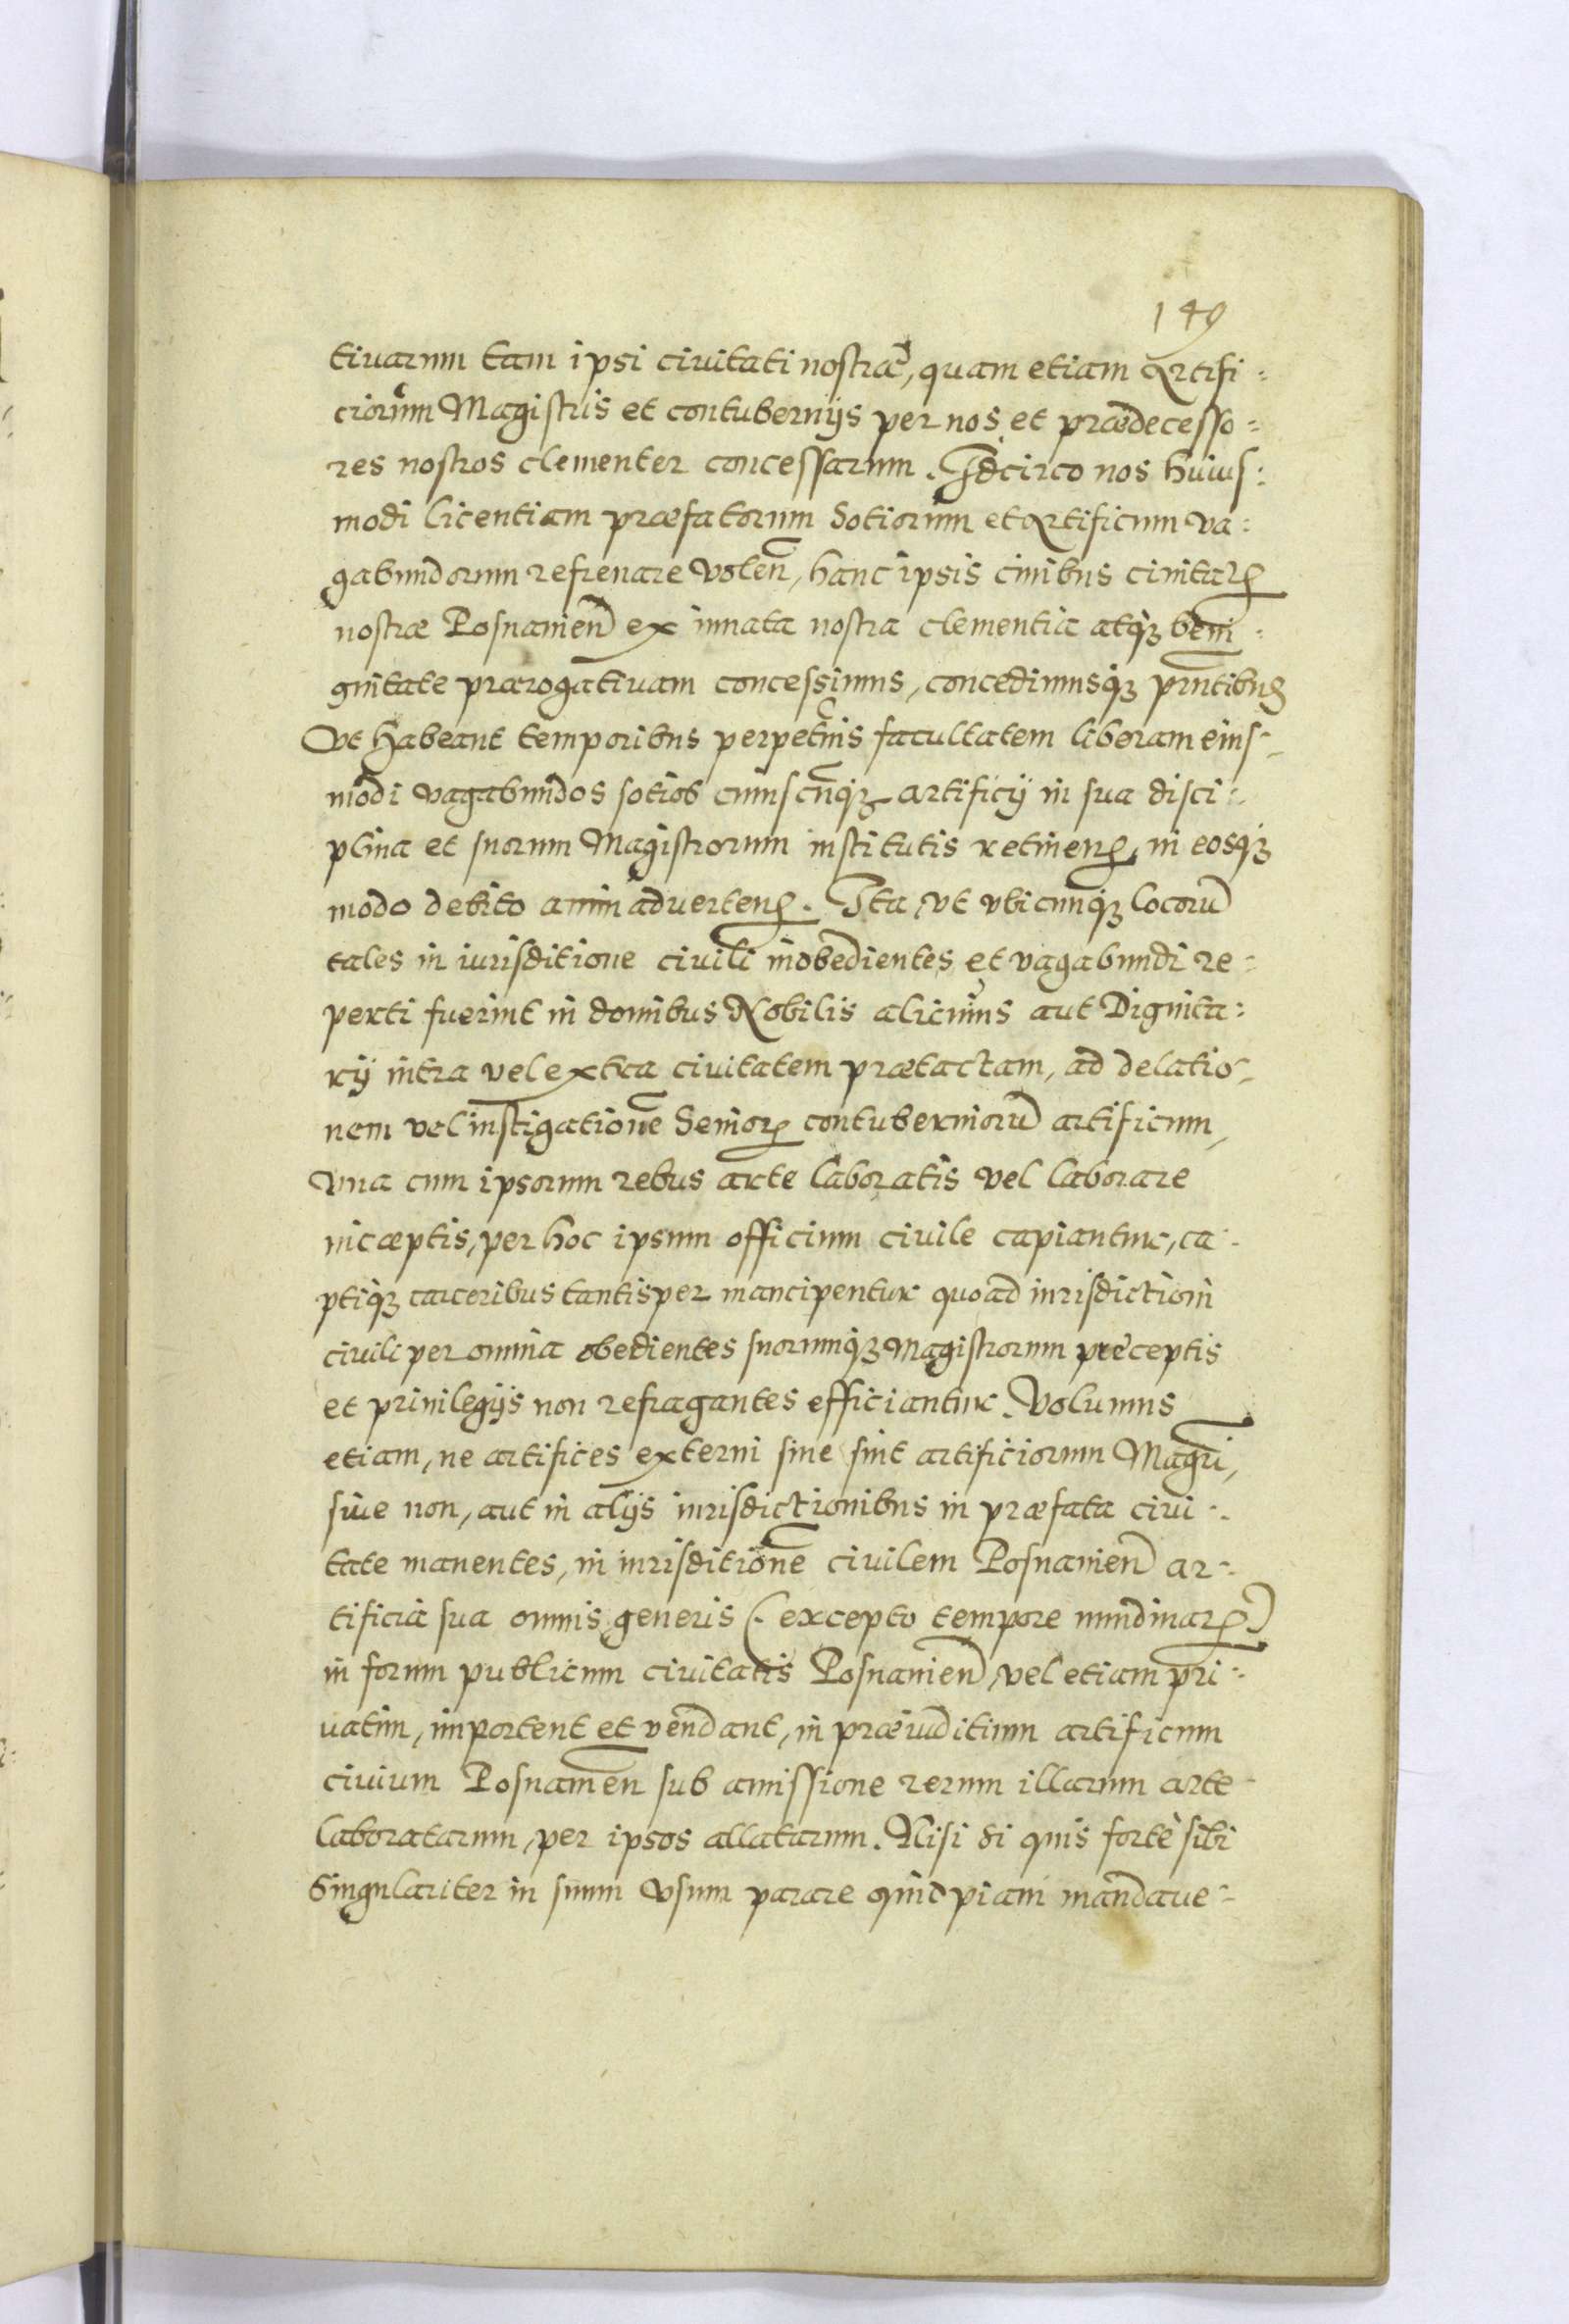 149
tivarum tam ipsi civitati nostræ, quam etiam Artifi:
ciorum Magistris et contubernijs per nos et prædecesso:
res nostros clementer concessarum. Idcirco nos huius:
modi licentiam præfatorum Sotiorum et Artificum va:
gabundorum refrenare volen, hanc ipsis ciuibus ciuitatꝭ
nostræ Posnanien ex innata nostra clementia atqꝫ beni:
gnitate prærogativam concessimus, concedimusqꝫ pnntibuꝭ
Vt habeant temporibus perpetuis facultatem liberam eius:
modi vagabundos sotios cuiuscunqꝫ artificij in sua disci:
plina et suorum Magistrorum institutis retinenꝭ, in eosqꝫ
modo debito animadvertenꝭ. Ita, vt vbicunqꝫ locorū
tales in iurisditione civili inobedientes et vagabundi re:
perti fuerint in domibus Nobilis alicuius aut Dignita:
rij intra vel extra civitatem prætactam, ad delatio:
nem vel instigationē Seniorꝝ contuberniorū artificum,
vna cum ipsorum rebus arte laboratis vel laborare
incæptis, per hoc ipsum officium civile capiantur, ca:
ptiqꝫ carceribus tantisper mancipentur quoad iurisdictioni
civili per omnia obedientes suorumqꝫ Magistrorum præceptis
et privilegijs non refragantes efficiantur. Volumus
etiam, ne artifices externi siue sint artificiorum Magrī,
siue non, aut in alijs iurisdictionibus in præfata civi:
tate manentes, in iurisditionē civilem Posnanien ar:
tificia sua omnis generis (excepto tempore nundinarꝝ)
in forum publicum civitatis Posnanien, vel etiam pri:
uatim, importent et vendant, in præiuditium artificum
civium Posnanien sub amissione rerum illarum arte
laboratarum, per ipsos allatarum. Nisi si quis fortè sibi
singulariter in suum vsum parare quidpiam mandaue: